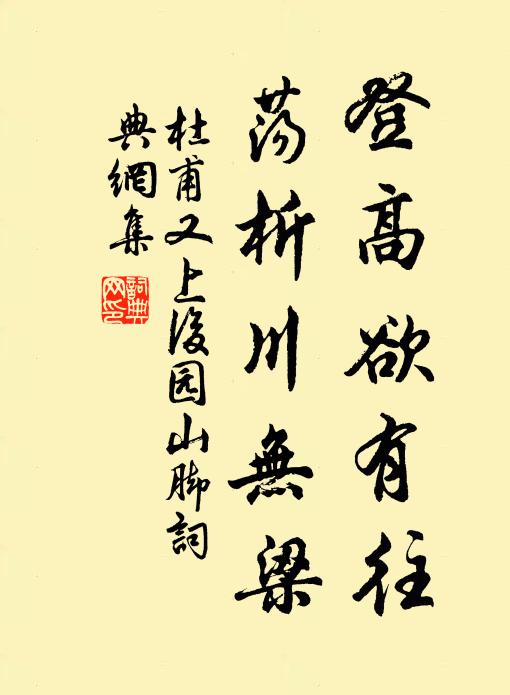 登高欲有往
荡析川無梁
杜甫又上後园山脚詞
典網集
詞典網印